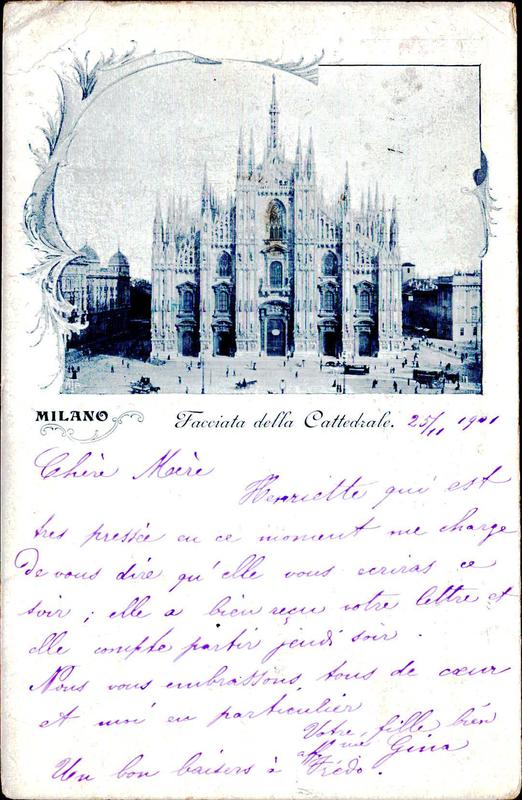 MILANO
Facciata della Cattedrale. 25/11 1901
Chère Mère
Henriette qui est
tres pressée en ce moment me charge
de vous dire qu'elle vous ecriras ce
soir ; elle a bien reçu votre lettre et
elle compte partir jeudi soir.
Nous vous embrassons tous de cœur
et moi en particulier
Votre fille bien
aff mée Gina
Un bon baisers à Frédo.